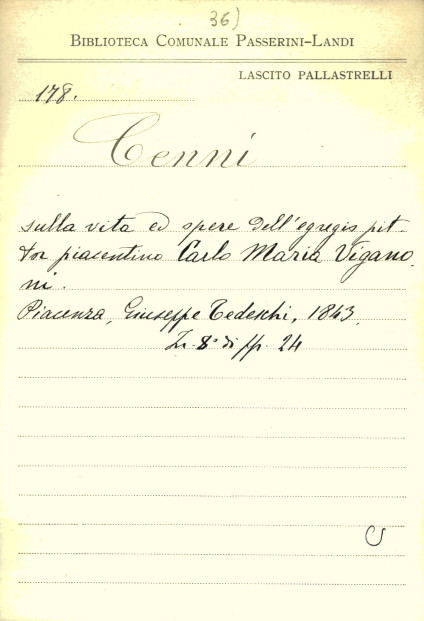 36)
BIBLIOTECA COMUNALE PASSERINI-LANDI
LASCITO PALLASTRELLI
178.
Cenni
sulla vita ed opere dell'egregio pit-
tor piacentino Carlo Maria Vigano
ni.
Piacenza, Giuseppe Tedeschi, 1843.
In 8° di pp. 24